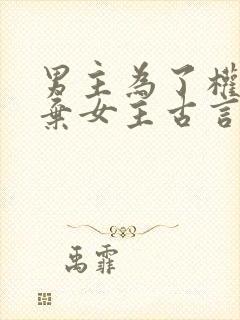 男主為了權
棄女主古言
禹霏